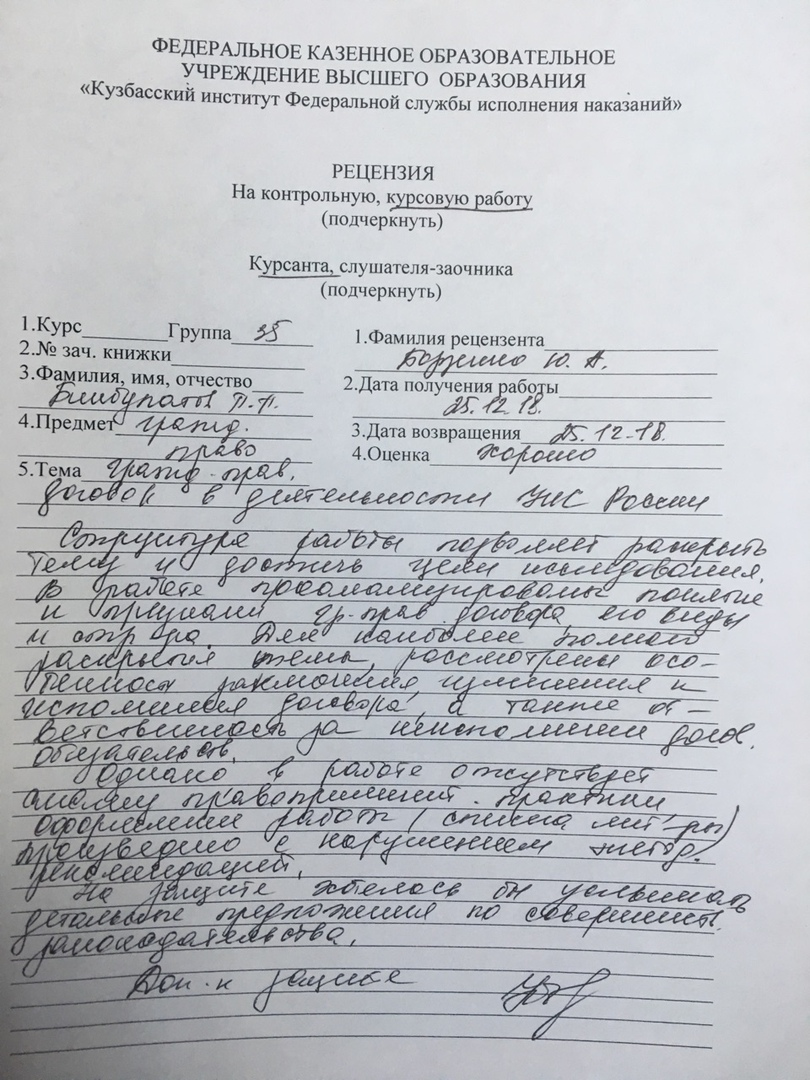 ФЕДЕРАЛЬНОЕ КАЗЕННОЕ ОБРАЗОВАТЕЛЬНОЕ
УЧРЕЖДЕНИЕ ВЫСШЕГО ОБРАЗОВАНИЯ
«Кузбасский институт Федеральной службы исполнения наказаний»
РЕЦЕНЗИЯ
На контрольную, курсовую работу
(подчеркнуть)
Курсанта, слушателя-заочника
(подчеркнуть)
1.Курс Группа 35
2.№ зач. книжки
3.Фамилия, имя, отчество
Бимбулатов П.П.
4.Предмет гражд.
право
5.Тема гражд.-прав.
1.Фамилия рецензента
Ю. А.
2.Дата получения работы
25.12.18.
3.Дата возвращения 25.12.18.
4.Оценка хорошо
договор в деятельности УИС России
Структура работы позволяет раскрыть
тему и достичь цели исследования.
В работе проанализированы понятие
и признаки гр.-прав. договора, его виды
и стр-ра. Для наиболее полного
раскрытия темы, рассмотрены осо-
бенности заключения, изменения и
исполнения договора, а также от-
ветственность за неисполнение догов.
обязательств.
Однако в работе отсутствует
анализ правопримений. практики
оформление работы (списка лит-ры)
произведено с нарушением метод.
рекомендаций.
На защите хотелось бы услышать
детальные предложения по совершенст.
законодательства.
Доп. к защите